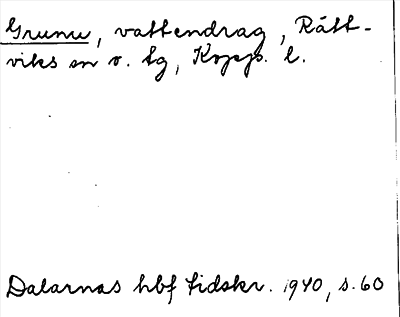 Grunu, vattendrag, Rätt-
viks sn o. tg, Kopp. l.
Dalarnas hbf tidskr. 1940, s. 60